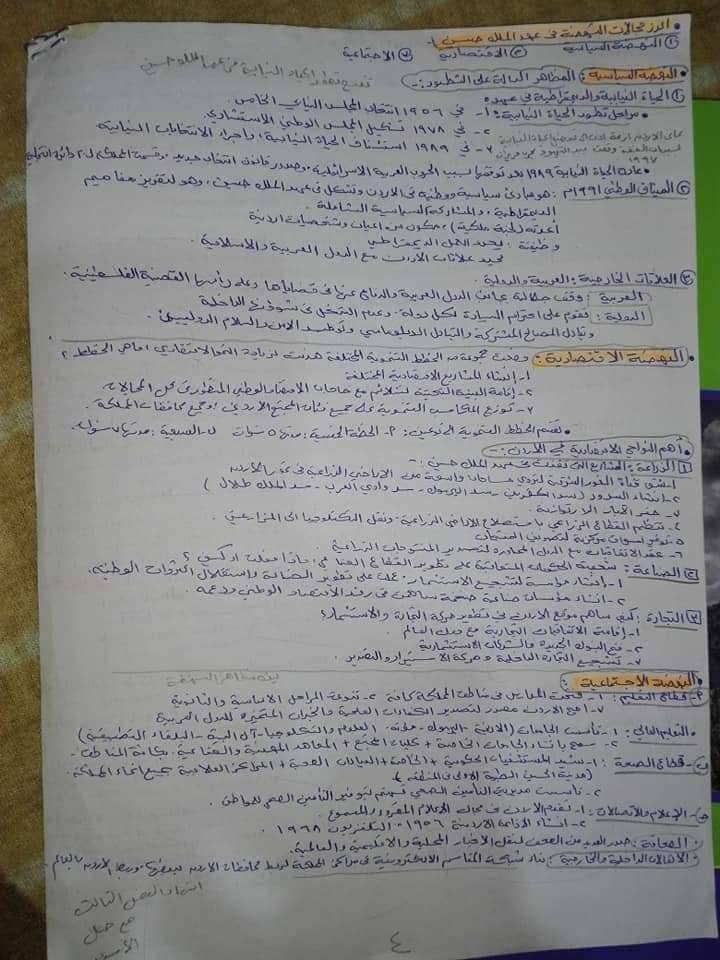 • ابرز مجالات النهضة في عهد الملك حسين :-
١) النهضة السياسية ٢) الاقتصادية ٣) الاجتماعية
• النهضة السياسية : المظاهر الدالة على التطور :-
١) الحياة النيابية والديمقراطية في عهده
• مراحل تطور الحياة النيابية : ١- في ١٩٥٦ انتخاب المجلس النيابي الخامس .
٢- في ١٩٧٨ تشكيل المجلس الوطني الاستشاري .
٣- في ١٩٨٩ استئناف الحياة النيابية ، واجراء الانتخابات النيابية
• عادت الحياة النيابية ١٩٨٩ بعد توقفها بسبب الحروب العربية الاسرائيلية ، وصدور قانون انتخاب جديد ، وقسمت المملكة
٢) الميثاق الوطني ١٩٩١م : هو مبادئ سياسية ووطنية في الاردن وتشكل في عهد الملك حسين ، وهو لتعزيز مفاهيم
الديمقراطية ، والمشاركة السياسية الشاملة .
أعدته ( لجنة ملكية ) ، مكون من اعيان وشخصيات اردنية
وظيفته : يحدد العمل الديمقراطي
يحدد علاقات الاردن مع الدول العربية والاسلامية
٣) العلاقات الخارجية : العربية والدولية .
العربية : وقف جلالته بجانب الدول العربية والدفاع عنها في قضاياها وعلى رأسها القضية الفلسطينية .
الدولية : تقوم على احترام السيادة لكل دولة ، وعدم التدخل في شؤونها الداخلية
وتبادل المصالح المشتركة والتبادل الدبلوماسي وتوطيد الامن والسلام الدوليين .
• النهضة الاقتصادية : وضعت مجموعة من الخطط التنموية المختلفة هدفت لزيادة النمو الاقتصادي ، ما هي الخطط ؟
١- إنشاء المشاريع الاقتصادية المختلفة
٢- إقامة البنية التحتية لتتلائم مع حاجات الاقتصاد الوطني المتطور في كل المجالات
٣- توزيع المكاسب التنموية على جميع فئات المجتمع الاردني ، وجميع محافظات المملكة .
• تقسم الخطط التنموية الى نوعين : ٢- الخطة الخمسية : مدتها ٥ سنوات
• أهم النواحي الاقتصادية في الاردن :-
١) الزراعة : المشاريع التي نفذت في عهد الملك حسين :-
١- شق قناة الغور الشرقية لتروي مساحات واسعة من الاراضي الزراعية في غور الاردن
٢- انشاء السدود ( سد الكفرين - سد اليرموك - سد وادي العرب - سد الملك طلال )
٣- حفر الابار الارتوازية .
٤- تنظيم القطاع الزراعي باستصلاح الاراضي الزراعية ونقل التكنولوجيا الى المزارعين .
٥- توفير اسواق مركزية لتصدير المنتجات
٦- عقد الاتفاقيات مع الدول المجاورة لتصدير المنتوجات الزراعية
٢) الصناعة : سعت الحكومات المتعاقبة على تطوير القطاع الصناعي ، ماذا فعلت او كيف ؟
١- إنشاء مؤسسة لتشجيع الاستثمار ، عملت على تطوير الصناعة واستغلال الثروات الوطنية .
٢- انشاء مؤسسات صناعية ضخمة ساهمت في رفد الاقتصاد الوطني ودعمه .
٣) التجارة : كيف ساهم موقع الاردن في تطوير حركة التجارة والاستثمار ؟
١- إقامة الاتفاقيات التجارية مع دول العالم .
٢- فتح البنوك الجديدة والشركات الاستثمارية
٣- تشجيع التجارة الداخلية وحركة الاستيراد والتصدير .
النهضة الاجتماعية :
أ- قطاع التعليم : ١- فتحت المدارس في مناطق المملكة كافة ٢- تنوعت المراحل الاساسية والثانوية
٣- اصبح الاردن مصدر لتصدير الكفاءات العلمية والخبرات المتميزة للدول العربية
• التعليم العالي : ١- تأسست الجامعات ( الاردنية - اليرموك - مؤتة - العلوم والتكنولوجيا - آل البيت - البلقاء التطبيقية )
٢- سمح بإنشاء الجامعات الخاصة + كليات المجتمع + المعاهد المهنية والصناعية
ب- قطاع الصحة : ١- شيد المستشفيات الحكومية + الخاصة + العيادات + المراكز العلاجية بجميع انحاء المملكة
( مدينة الحسين الطبية الاولى في المنطقة )
٢- تأسست مديرية التأمين الصحي لتهتم بتوفير التأمين الصحي للمواطن .
ج- الإعلام والاتصالات : ١- تقدم الاردن في مجال الاعلام المقروء والمسموع
٢- انشاء الاذاعة الاردنية ١٩٥٦ - التلفزيون ١٩٦٨
• الصحافة : صدر العديد من الصحف لنقل الأخبار المحلية والاقليمية والعالمية .
• الاتصالات الداخلية والخارجية : بناء شبكة المقاسم الالكترونية في مراكز المملكة لربط محافظات الاردن ببعضها وربط الاردن بالعالم .
انتهاء الفصل الثالث
مع حل
٤